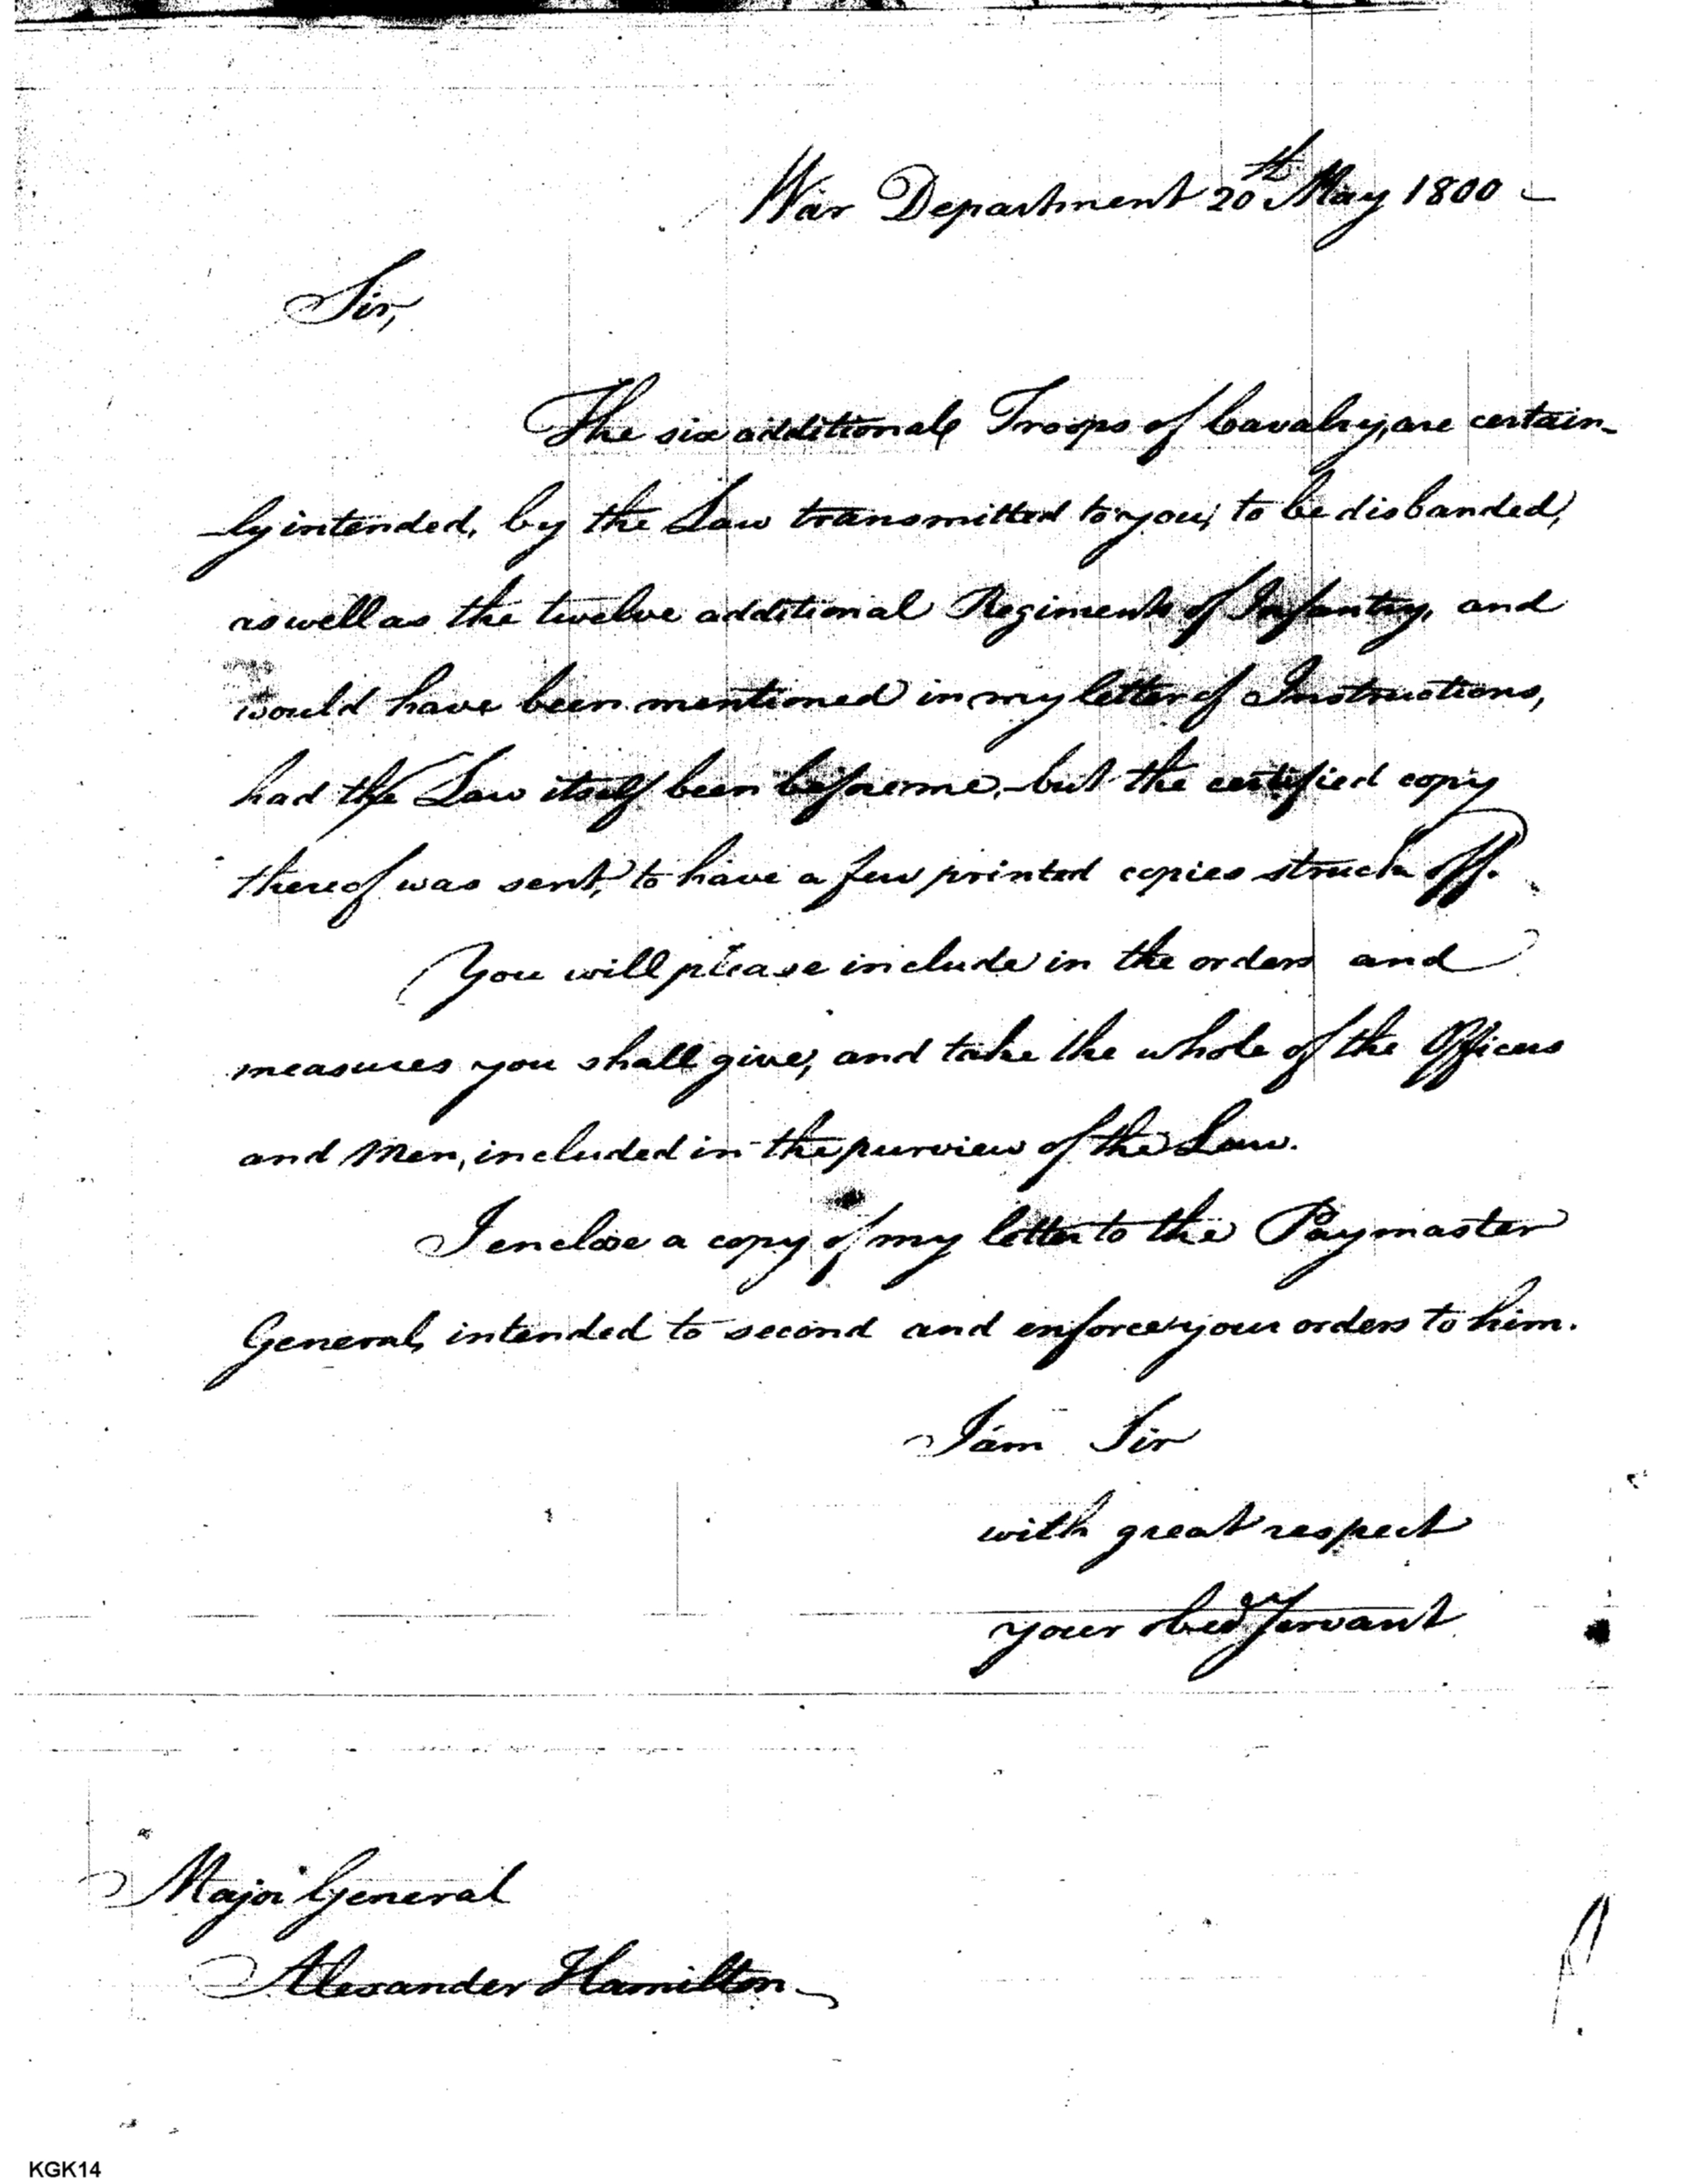 War Department 20th May 1800
Sir,
The six additional Troops of Cavalry, are certain-
-ly intended, by the Law transmitted to you, to be disbanded,
as well as the twelve additional Regiments of Infantry, and
would have been mentioned in my letter of Instructions,
had the Law itself been before me, but the certified copy
thereof was sent, to have a few printed copies struck off.
You will please include in the orders and
measures you shall give, and take the whole of the Officers
and Men, included in the purview of the Law.
I enclose a copy of my letter to the Paymaster
General, intended to second and enforce your orders to him.
I am Sir
with great respect
your obed Servant
Major General
Alexander Hamilton
KGK14